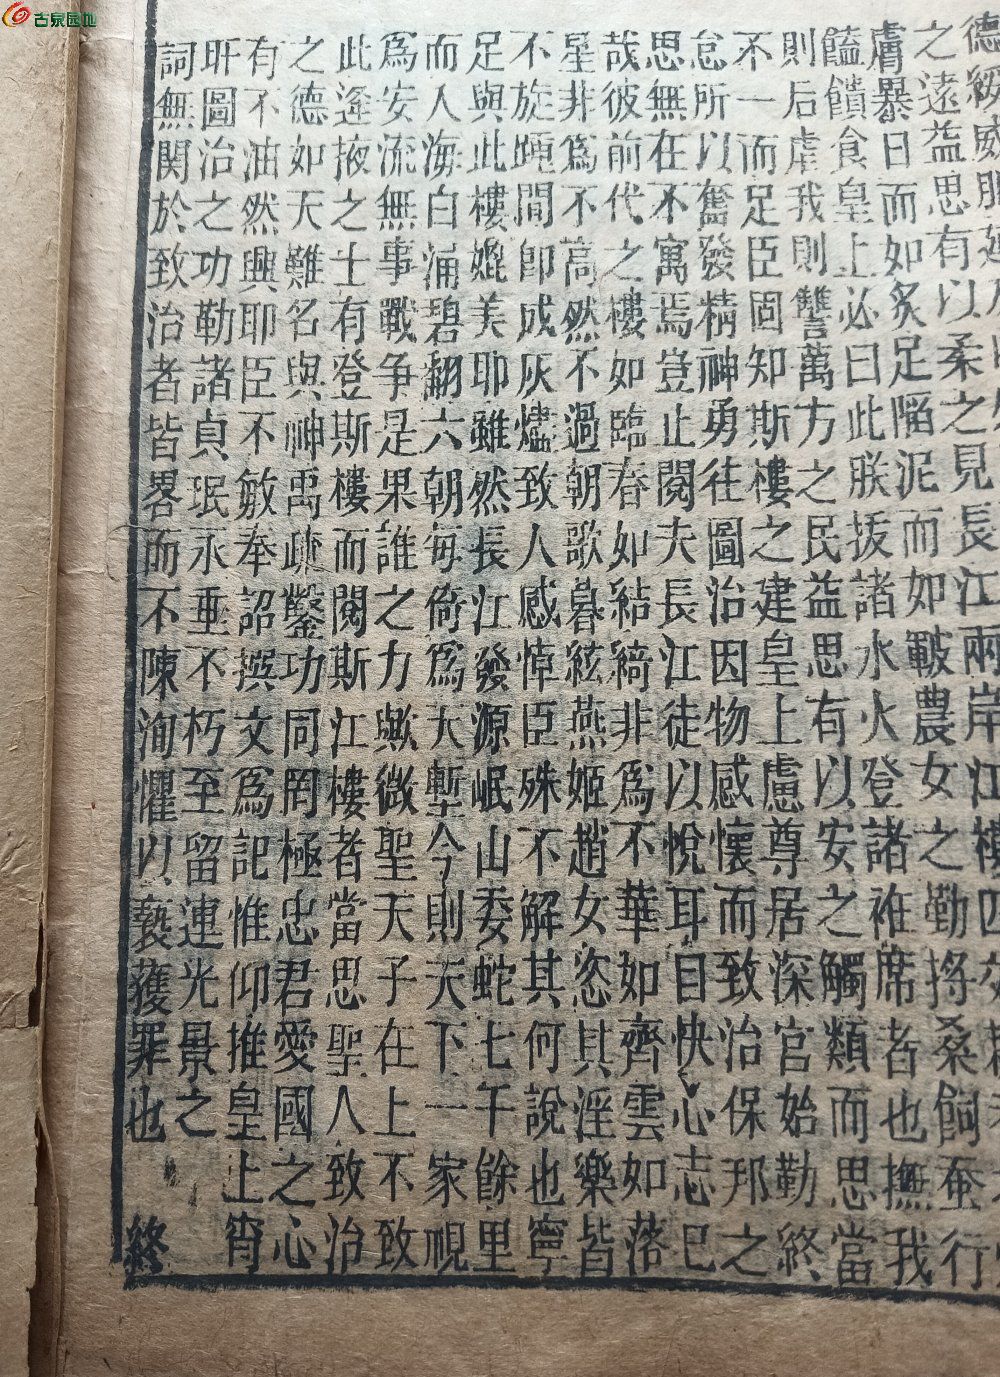 古泉园地
德綏威服
之遠益思有以柔之見長江兩岸江樓四郊
膚暴日而如炙足陷泥而如皸農女之勤捋桑飼蚕行
饁饋食皇上必曰此朕拔諸水火登諸袵席者也撫我
則后虐我則讐萬方之民益思有以安之觸類而思當
不一而足臣固知斯樓之建皇上慮尊居深宮始勤終
怠所以奮發精神勇往圖治因物感懷而致治保邦之
思無在不寓焉豈止閱夫長江徒以悅耳目快心志巳
哉彼前代之樓如臨春如結綺非爲不華如齊雲如落
星非爲不高然不過朝歌暮絃燕姬趙女恣其淫樂皆
不旋踵間即成灰燼致人感悼臣殊不解其何說也寧
足與此樓媲美耶雖然長江發源岷山委蛇七千餘里
而入海白涌碧翻六朝每倚爲大塹今則天下一家視
爲安流無事戰爭是果誰之力歟微聖天子在上不致
此逢掖之士有登斯樓而閱斯江樓者當思聖人致治
之德如天難名與神禹疏鑿功同罔極忠君愛國之心
有不油然興耶臣不敏奉詔撰文爲記惟仰推皇上宵
旰圖治之功勒諸貞珉永垂不朽至留連光景之
詞無関於致治者皆畧而不陳洵懼以褻獲罪也 終